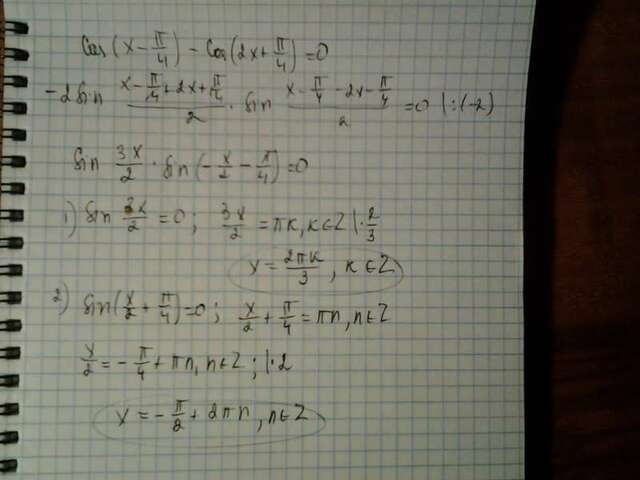 Cos(x-π/4) - Cos(2x+π/4)=0
-2Sin (x-π/4+2x+π/4)/2 · Sin (x-π/4-2x-π/4)/2 =0 |:(-2)
Sin 3x/2 · Sin(-x/2-π/4)=0
1) Sin 3x/2 =0; 3x/2 =πk, k∈Z |·2/3
x= 2πk/3, k∈Z
2) Sin(x/2+π/4)=0; x/2+π/4=πn, n∈Z
x/2=-π/4+πn, n∈Z; |·2
x=-π/2+2πn, n∈Z